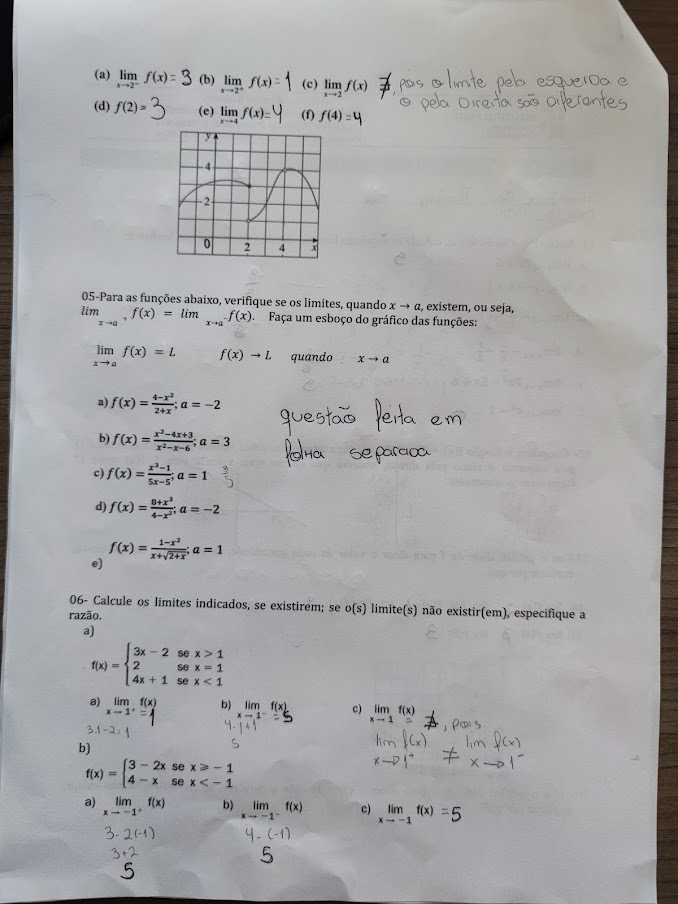 (a) lim x→2⁻ f(x) = 3 (b) lim x→2⁺ f(x) = 1 (c) lim x→2 f(x) ∄, pois o limite pela esquerda e
o pela direita são diferentes
(d) f(2) = 3 (e) lim x→4 f(x) = 4 (f) f(4) = 4
y
4
2
0 2 4 x
05-Para as funções abaixo, verifique se os limites, quando x → a, existem, ou seja,
lim x→a⁺ f(x) = lim x→a⁻ f(x). Faça um esboço do gráfico das funções:
lim x→a f(x) = L f(x) → L quando x → a
a) f(x) = (4−x²)/(2+x); a = −2
questão feita em
folha separada
b) f(x) = (x²−4x+3)/(x²−x−6); a = 3
c) f(x) = (x³−1)/(5x−5); a = 1 3/5
d) f(x) = (8+x³)/(4−x²); a = −2
f(x) = (1−x²)/(x+√(2+x)); a = 1
e)
06- Calcule os limites indicados, se existirem; se o(s) limite(s) não existir(em), especifique a
razão.
a)
f(x) = { 3x − 2 se x > 1
2 se x = 1
4x + 1 se x < 1
a) lim x→1⁺ f(x) = 1 b) lim x→1⁻ f(x) = 5 c) lim x→1 f(x) = ∄, pois
3.1-2=1 4.1+1 lim f(x) x→1⁺ ≠ lim f(x) x→1⁻
5
b)
f(x) = { 3 − 2x se x ⩾ − 1
4 − x se x < − 1
a) lim x→−1⁺ f(x) b) lim x→−1⁻ f(x) c) lim x→−1 f(x) = 5
3-2(-1) 4-(-1)
3+2 5
5